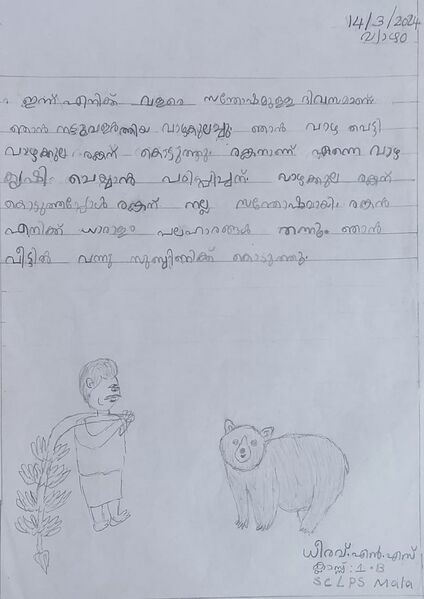 14/3/2024
വ്യാഴം
ഇന്ന് എനിക്ക് വളരെ സന്തോഷമുള്ള ദിവസമാണ്.
ഞാൻ നട്ടുവളർത്തിയ വാഴകുലച്ചു. ഞാൻ വാഴ വെട്ടി
വാഴക്കുല രങ്കന് കൊടുത്തു. രങ്കനാണ് എന്നെ വാഴ
കൃഷി ചെയ്യാൻ പഠിപ്പിച്ചത്. വാഴക്കുല രങ്കന്
കൊടുത്തപ്പോൾ രങ്കന് നല്ല സന്തോഷമായി. രങ്കൻ
എനിക്ക് ധാരാളം പലഹാരങ്ങൾ തന്നു. ഞാൻ
വീട്ടിൽ വന്നു കൊടുത്തു.
ധീരവ്.എൻ.എസ്
ക്ലാസ്സ്: 1.B
SCLPS Mala